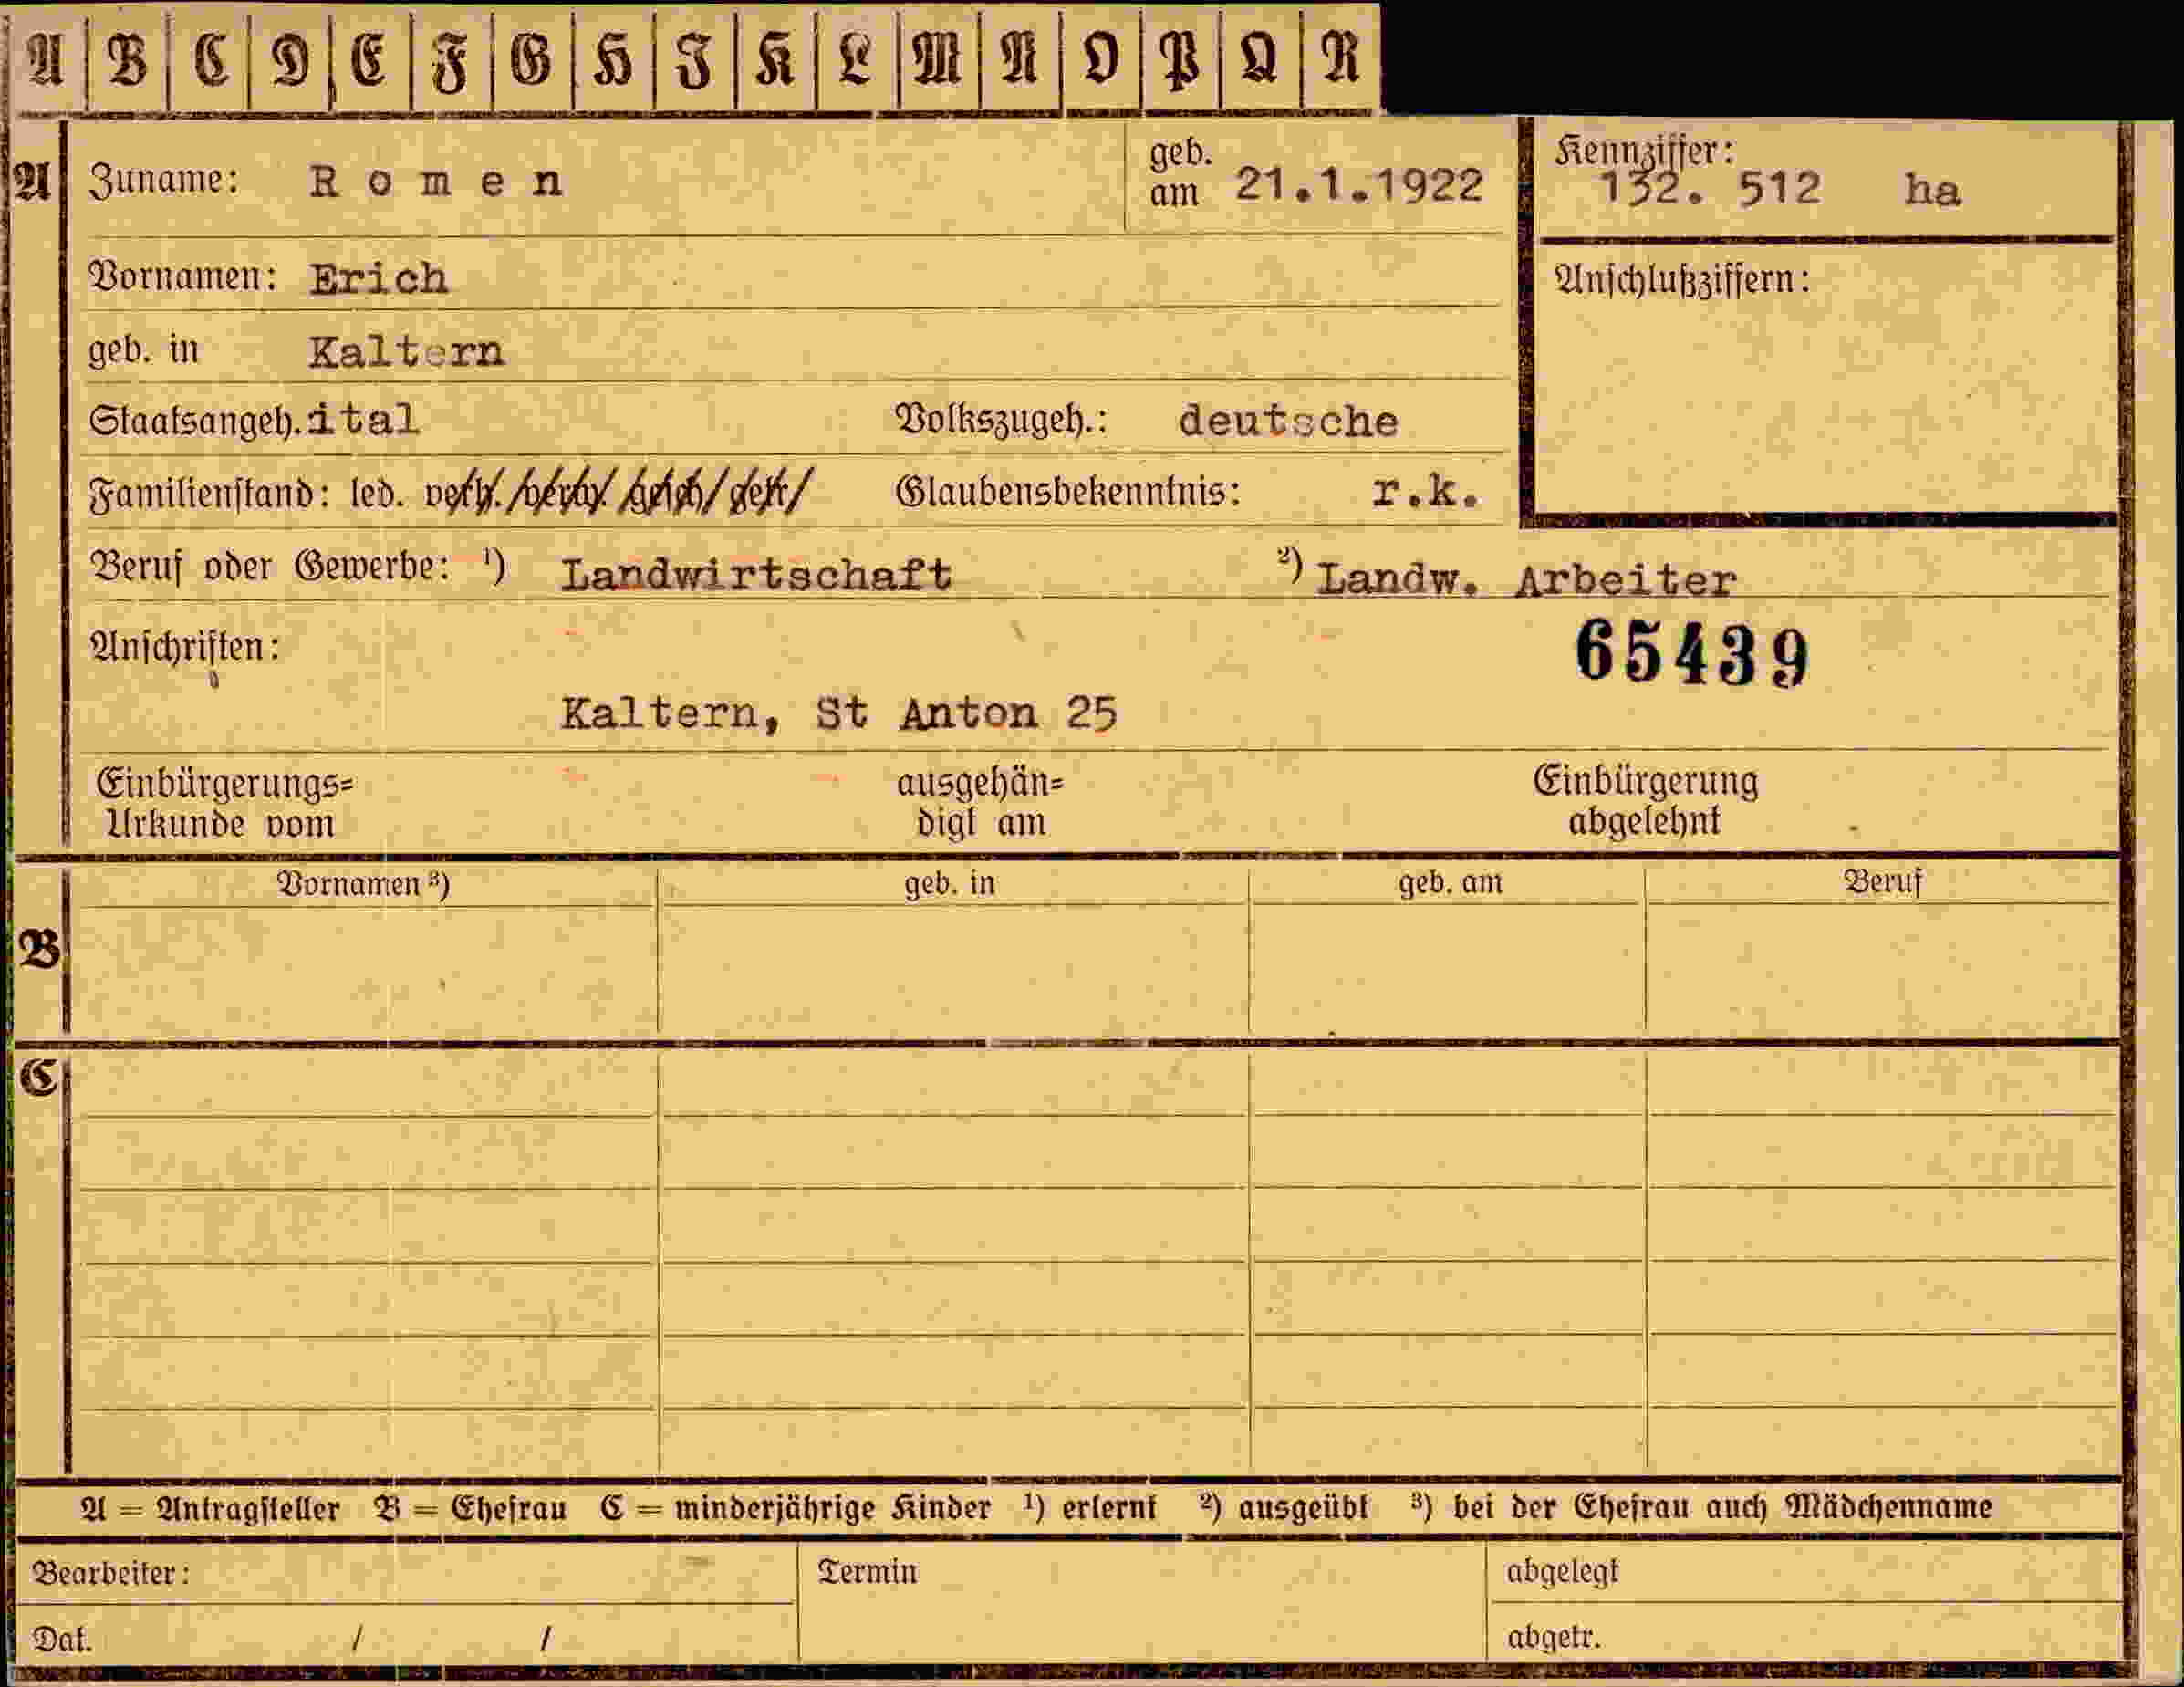 A B C D E F G H I K L M N O P Q R
A Zuname: Romen geb. am 21.1.1922 Kennziffer: 132. 512 ha
Vornamen: Erich Anschlußziffern:
geb. in Kaltern
Staatsangeh. ital Volkszugeh.: deutsche
Familienstand: led. verh. verw. gesch. getr. Glaubensbekenntnis: r.k.
Beruf oder Gewerbe: ¹) Landwirtschaft ²) Landw. Arbeiter
Anschriften: 65439
Kaltern, St Anton 25
Einbürgerungs= ausgehän= Einbürgerung
Urkunde vom digt am abgelehnt
Vornamen ³) geb. in geb. am Beruf
B
C
A = Antragsteller B = Ehefrau C = minderjährige Kinder ¹) erlernt ²) ausgeübt ³) bei der Ehefrau auch Mädchenname
Bearbeiter: Termin abgelegt
Dat. / / abgetr.